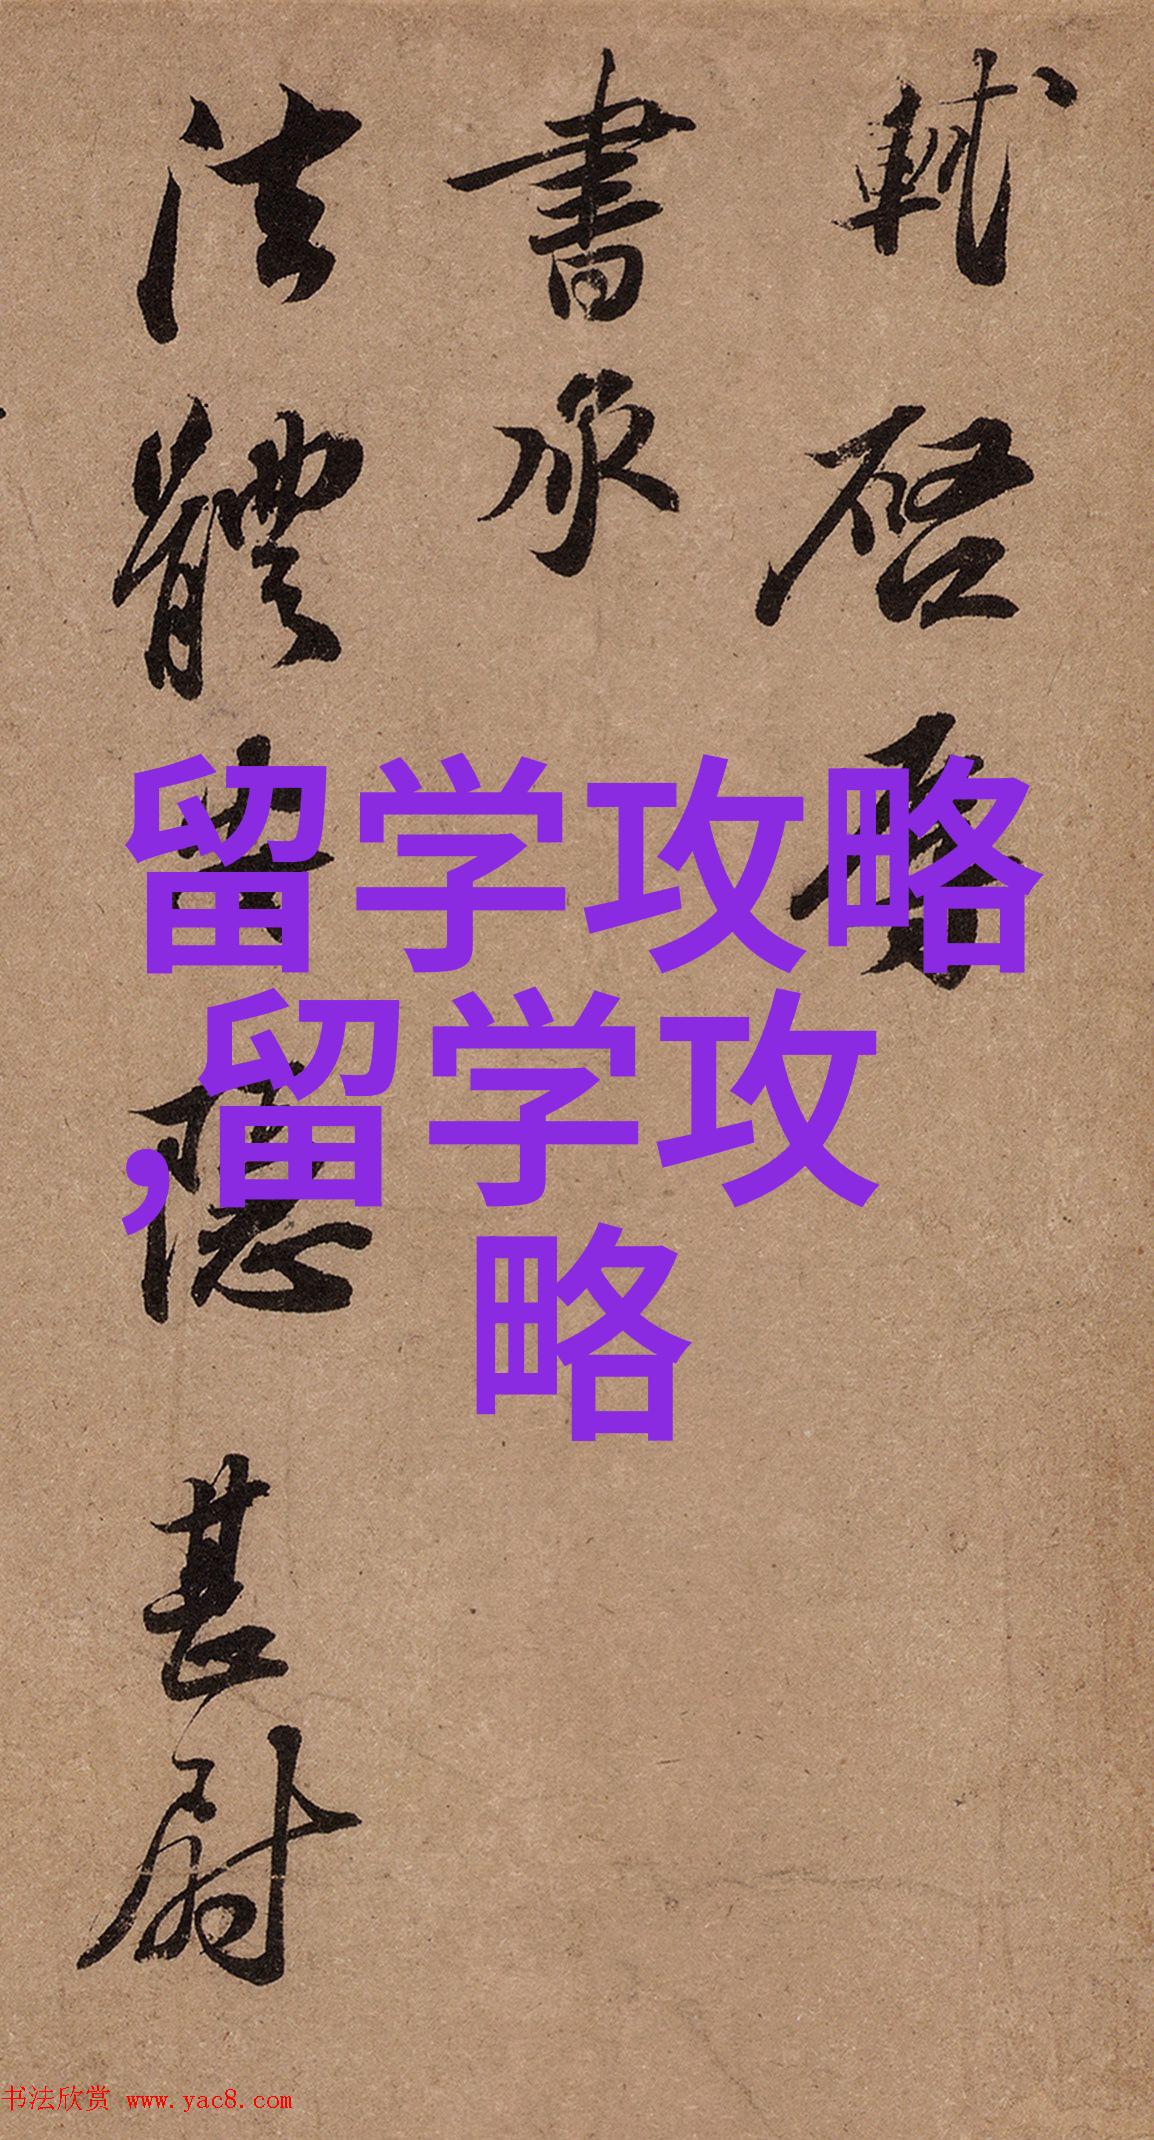 軾啓辱
書承
法體安隱甚尉
留学攻略
,留学攻
略
书法欣赏 www.yac8.com